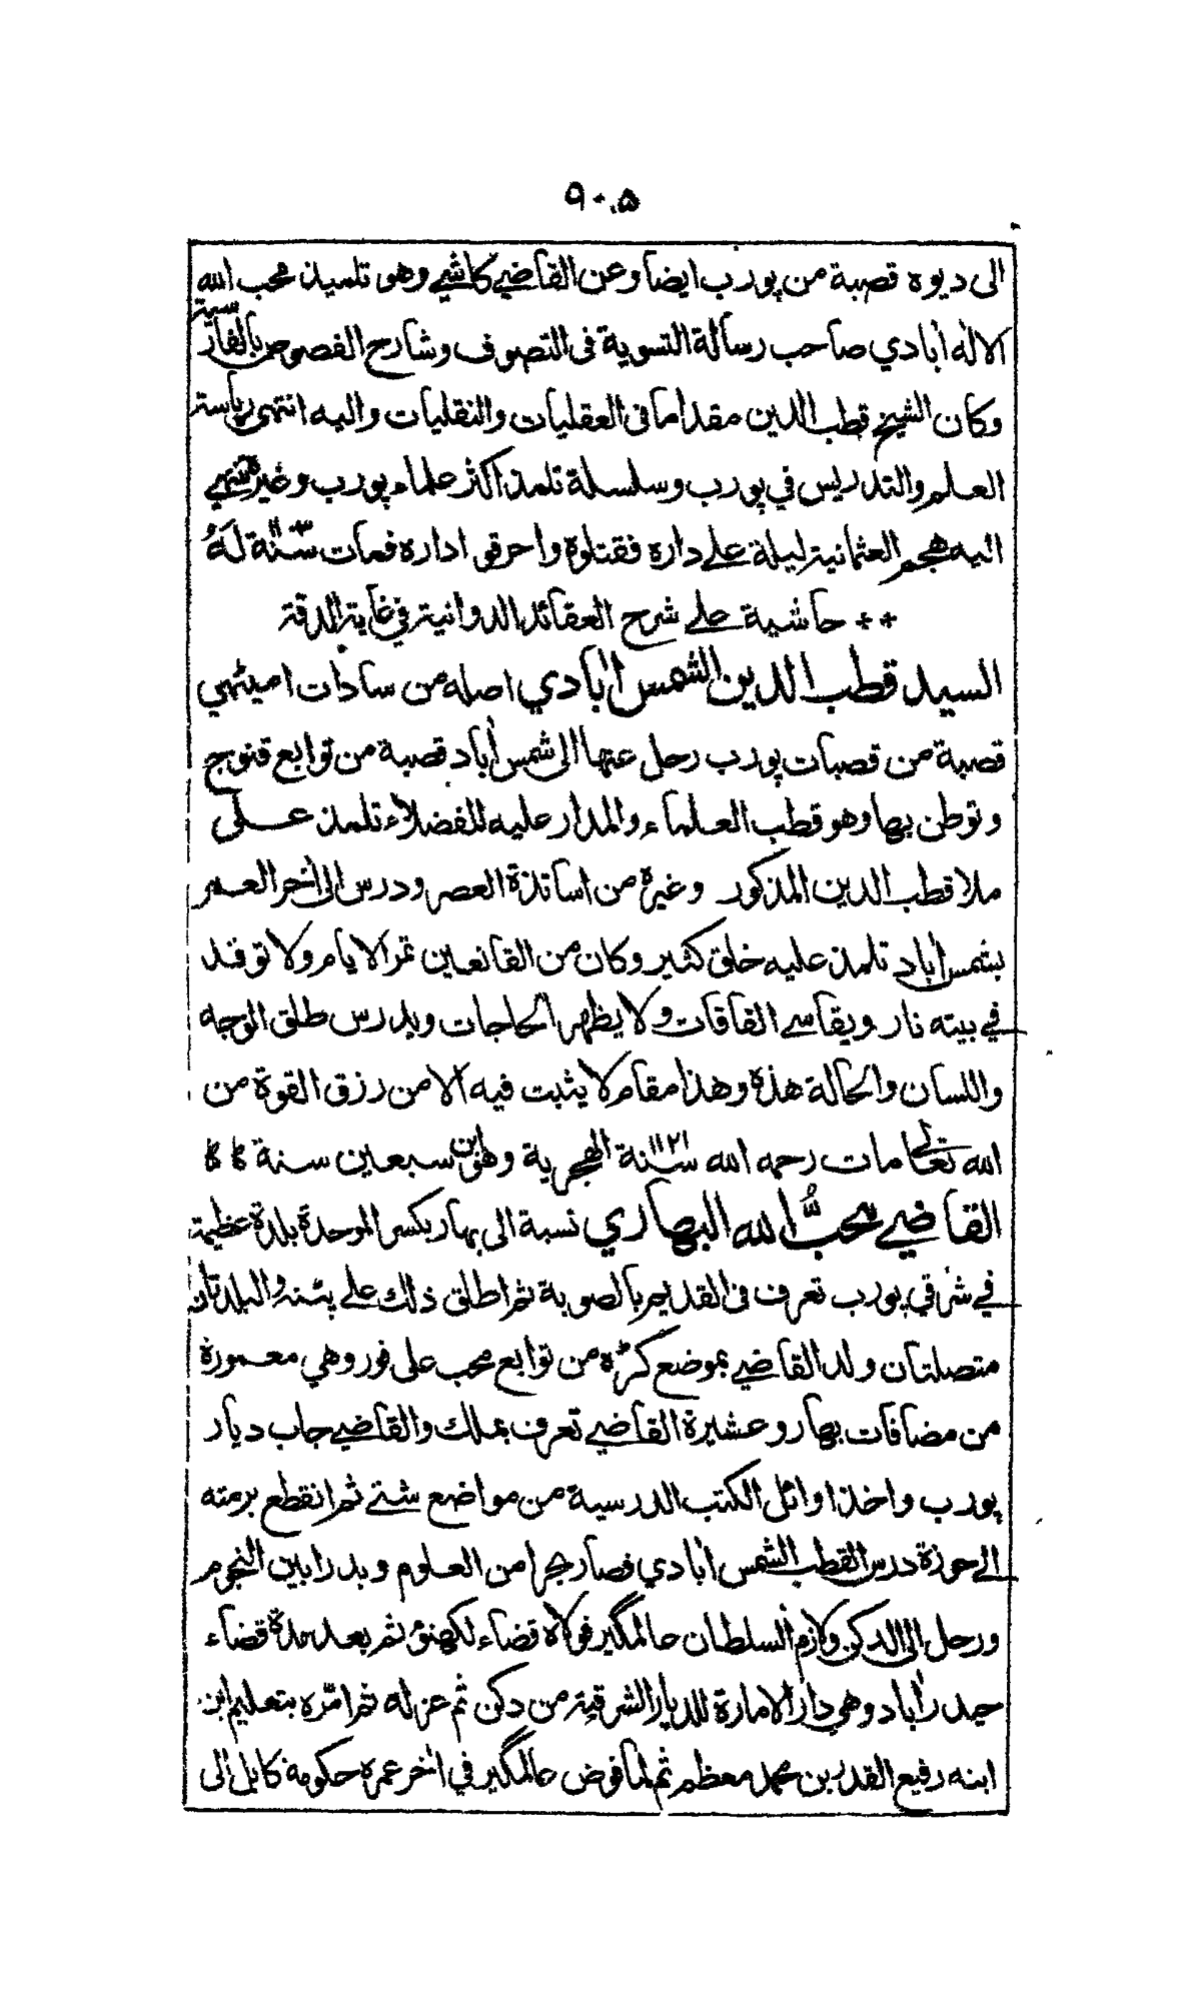 ٩٠٥
الى ديوه قصبة من پورب ايضا وعن القاضي كاشي وهو تلميذ محب الله
الاله اٰبادي صاحب رسالة التسوية فى التصوف وشارح الفصوص بالفارسية
وكان الشيخ قطب الدين مقداما فى العقليات والنقليات واليه انتهى رياسة
العلم والتدريس في پورب وسلسلة تلمذ اكثر علماء پورب وغيره تنتهي
اليه هجم العثمانية ليلة على داره فقتلوه واحرقوا داره فمات سنة لَهُ
** حاشية على شرح العقائد الدوانية في غاية الدقة
السيد قطب الدين الشمس اٰبادي اصله من سادات اميٹهي
قصبة من قصبات پورب رحل عنها الى شمس اٰباد قصبة من توابع قنوج
وتوطن بها وهو قطب العلماء والمدار عليه للفضلاء تلمذ على
ملا قطب الدين المذكور وغيره من اساتذة العصر ودرس الى اٰخر العمر
بشمس اٰباد تلمذ عليه خلق كثير وكان من القانعين تمر الايام ولا توقد
في بيته نار ويقاسي الفاقات ولا يظهر الحاجات ويدرس طلق الوجه
واللسان والحالة هذه وهذا مقام لا يثبت فيه الا من رزق القوة من
الله تعالى مات رحمه الله سنة ١١٢١ الهجرية وهو ابن سبعين سنة
القاضي محبُّ الله البهاري نسبة الى بهار بكسر الموحدة بلدة عظيمة
في شرقي پورب تعرف فى القديم بالصوبة ثم اطلق ذلك على پٹنه والبلدتان
متصلتان ولد القاضي بموضع كڑه من توابع محب على فور وهي معمورة
من مضافات بهار وعشيرة القاضي تعرف بملك والقاضي جاب ديار
پورب واخذ اوائل الكتب الدرسية من مواضع شتى ثم انقطع برمته
الى حوزة درس القطب الشمس اٰبادي فصار بحرا من العلوم وبدرا بين النجوم
ورحل الى الدكن ولازم السلطان عالمگير فولاه قضاء لكهنؤ ثم بعد مدة قضاء
حيدر اٰباد وهي دار الامارة للديار الشرقية من دكن ثم عزله ثم امّره بتعليم ابن
ابنه رفيع القدر بن محمد معظم ثم لما فوض عالمگير في اٰخر عمره حكومة كابل الى